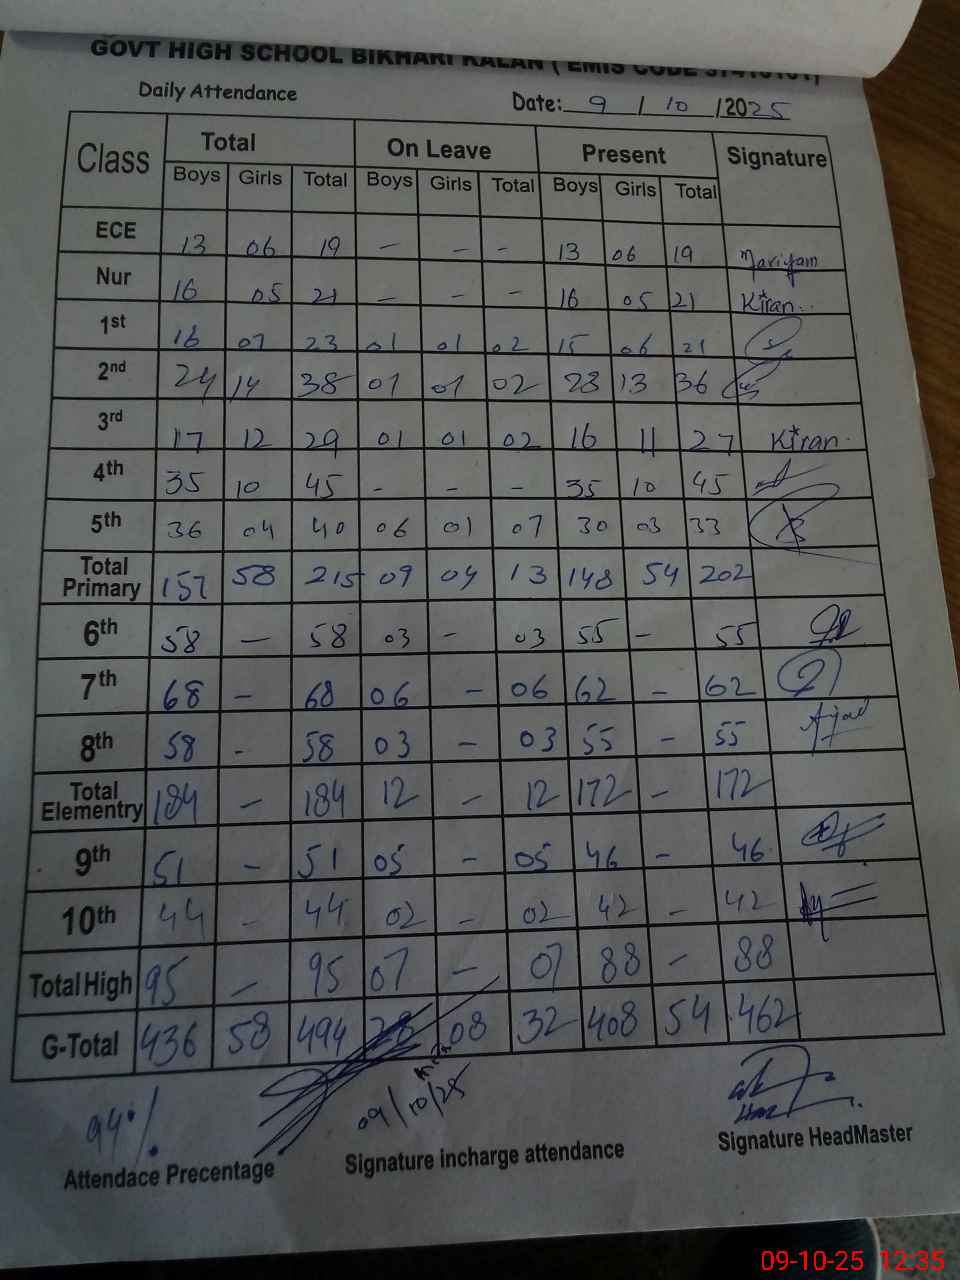 GOVT HIGH SCHOOL BIKHARI KALAN ( EMIS CODE
Daily Attendance Date: 9 / 10 / 2025
Class Total On Leave Present Signature
Boys Girls Total Boys Girls Total Boys Girls Total
ECE 13 06 19 – – – 13 06 19 Mariyam
Nur 16 05 21 – – – 16 05 21 Kiran
1st 16 07 23 01 01 02 15 06 21
2nd 24 14 38 01 01 02 23 13 36
3rd 17 12 29 01 01 02 16 11 27 Kiran
4th 35 10 45 – – – 35 10 45
5th 36 04 40 06 01 07 30 03 33
Total Primary 157 58 215 09 04 13 148 54 202
6th 58 – 58 03 – 03 55 – 55
7th 68 – 68 06 – 06 62 – 62
8th 58 – 58 03 – 03 55 – 55
Total Elementry 184 – 184 12 – 12 172 – 172
9th 51 – 51 05 – 05 46 – 46
10th 44 – 44 02 – 02 42 – 42
Total High 95 – 95 07 – 07 88 – 88
G-Total 436 58 494 28 08 32 408 54 462
94%
09/10/25
Attendace Precentage Signature incharge attendance Signature HeadMaster
09-10-25 12:35